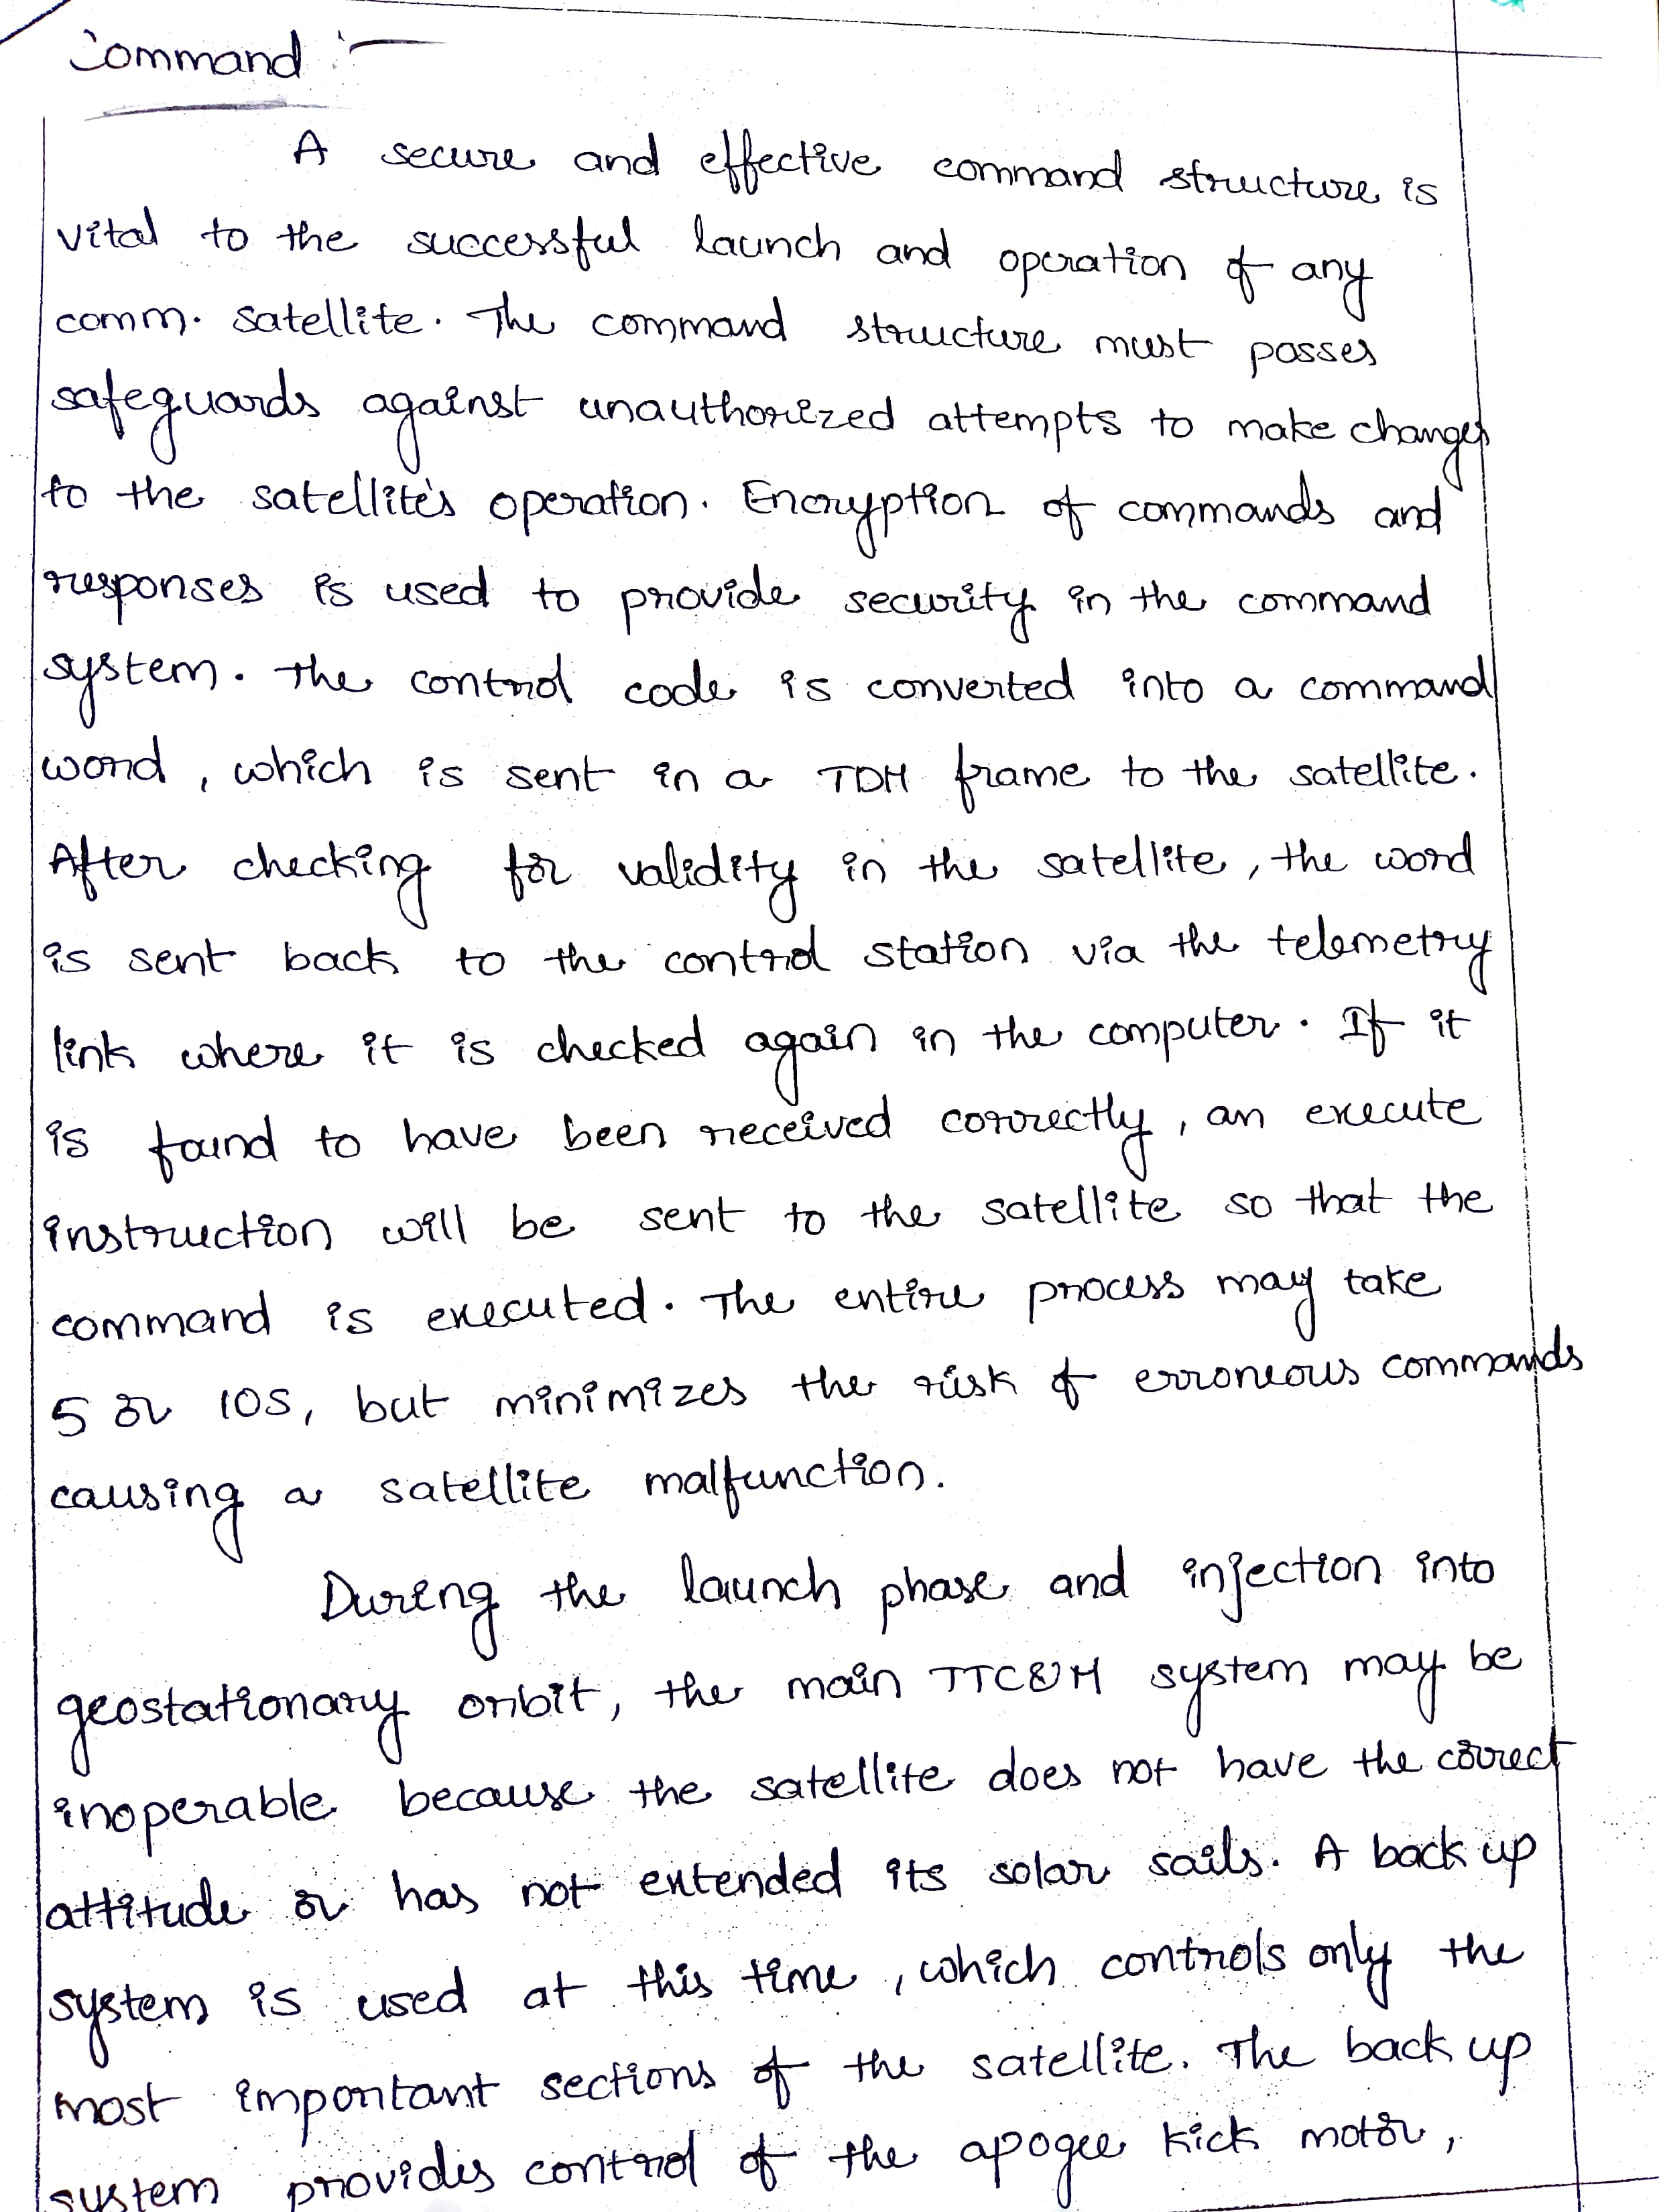 Command :-
A secure and effective command structure is
vital to the successful launch and operation of any
comm. satellite. The command structure must posses
safeguards against unauthorized attempts to make changes
to the satellite's operation. Encryption of commands and
responses is used to provide security in the command
system. The control code is converted into a command
word, which is sent in a TDM frame to the satellite.
After checking for validity in the satellite, the word
is sent back to the control station via the telemetry
link where it is checked again in the computer. If it
is found to have been received correctly, an execute
instruction will be sent to the satellite so that the
command is executed. The entire process may take
5 or 10s, but minimizes the risk of erroneous commands
causing a satellite malfunction.
During the launch phase and injection into
geostationary orbit, the main TTC&M system may be
inoperable because the satellite does not have the correct
attitude or has not extended its solar sails. A back up
system is used at this time, which controls only the
most important sections of the satellite. The back up
system provides control of the apogee kick motor,